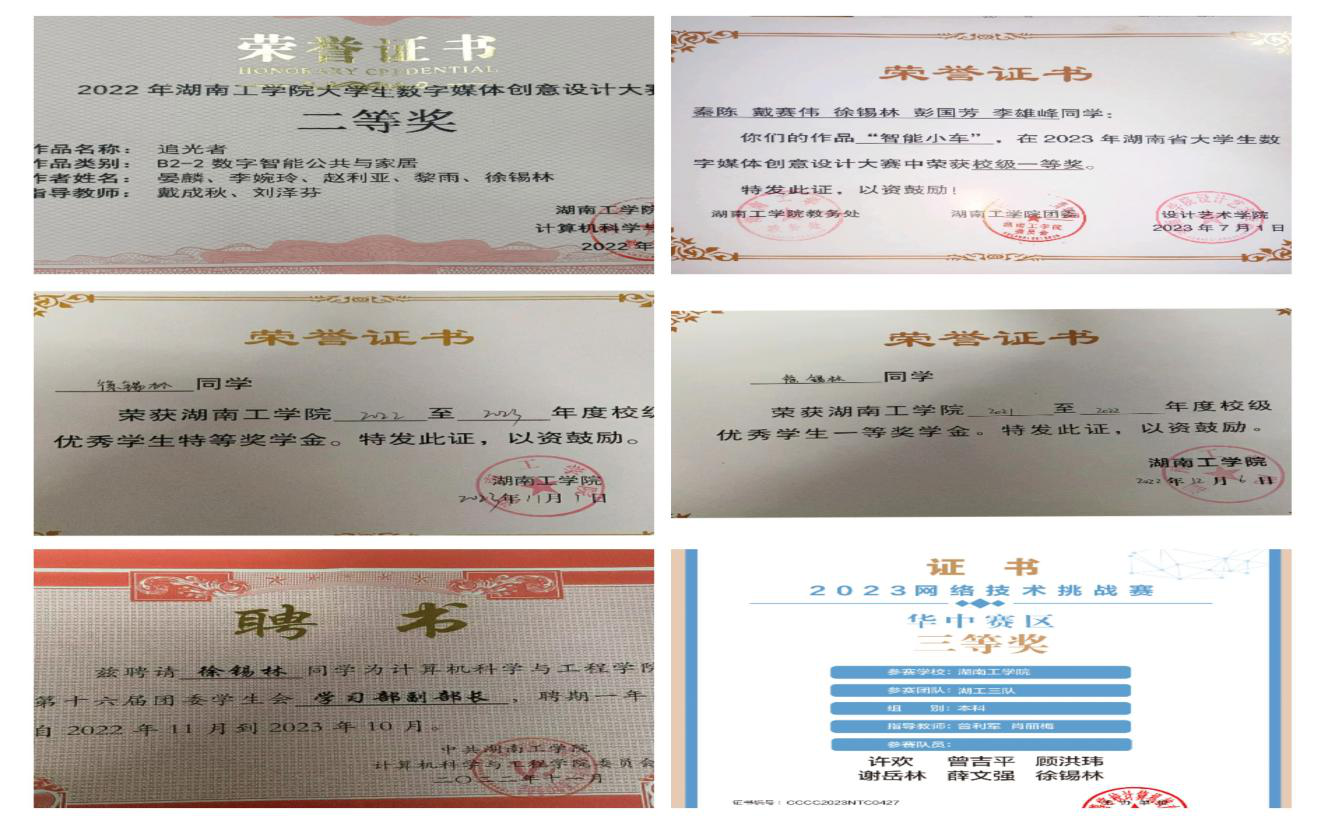 荣誉证书
HONORARY CREDENTIAL
2022 年湖南工学院大学生数字媒体创意设计大赛
二等奖
作品名称： 追光者
作品类别： B2-2 数字智能公共与家居
作者姓名： 晏麟、李婉玲、赵利亚、黎雨、徐锡林
指导教师： 戴成秋、刘泽芬
湖南工学院
计算机科学与
2022 年
荣誉证书
秦陈 戴赛伟 徐锡林 彭国芳 李雄峰同学：
你们的作品“智能小车”，在 2023 年湖南省大学生数
字媒体创意设计大赛中荣获校级一等奖。
特发此证，以资鼓励！
湖南工学院教务处 湖南工学院团委 设计艺术学院
2023 年 7 月 1 日
荣誉证书
徐锡林 同学
荣获湖南工学院 2022 至 2023 年度校级
优秀学生特等奖学金。特发此证，以资鼓励。
湖南工学院
2023年 11 月 1 日
荣誉证书
徐锡林 同学
荣获湖南工学院 2021 至 2022 年度校级
优秀学生一等奖学金。特发此证，以资鼓励。
湖南工学院
2022 年 12 月 6 日
聘 书
兹聘请 徐锡林 同学为计算机科学与工程学院
第十六届团委学生会 学习部副部长，聘期一年
自 2022 年 11 月到 2023 年 10 月。
中共湖南工学院
计算机科学与工程学院委员会
二〇二二年十一月
证 书
2023网络技术挑战赛
华中赛区
三等奖
参赛学校：湖南工学院
参赛团队：湖工三队
组 别：本科
指导教师：曾利军 肖丽梅
参赛队员：
许欢 曾吉平 顾洪玮
谢岳林 薛文强 徐锡林
证书编号：CCCC2023NTC0427